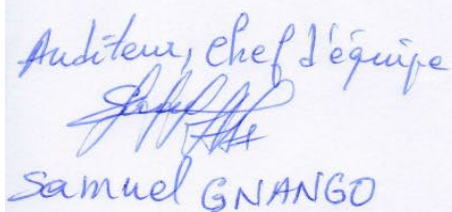 Auditeur, Chef d'équipe
Samuel GNANGO